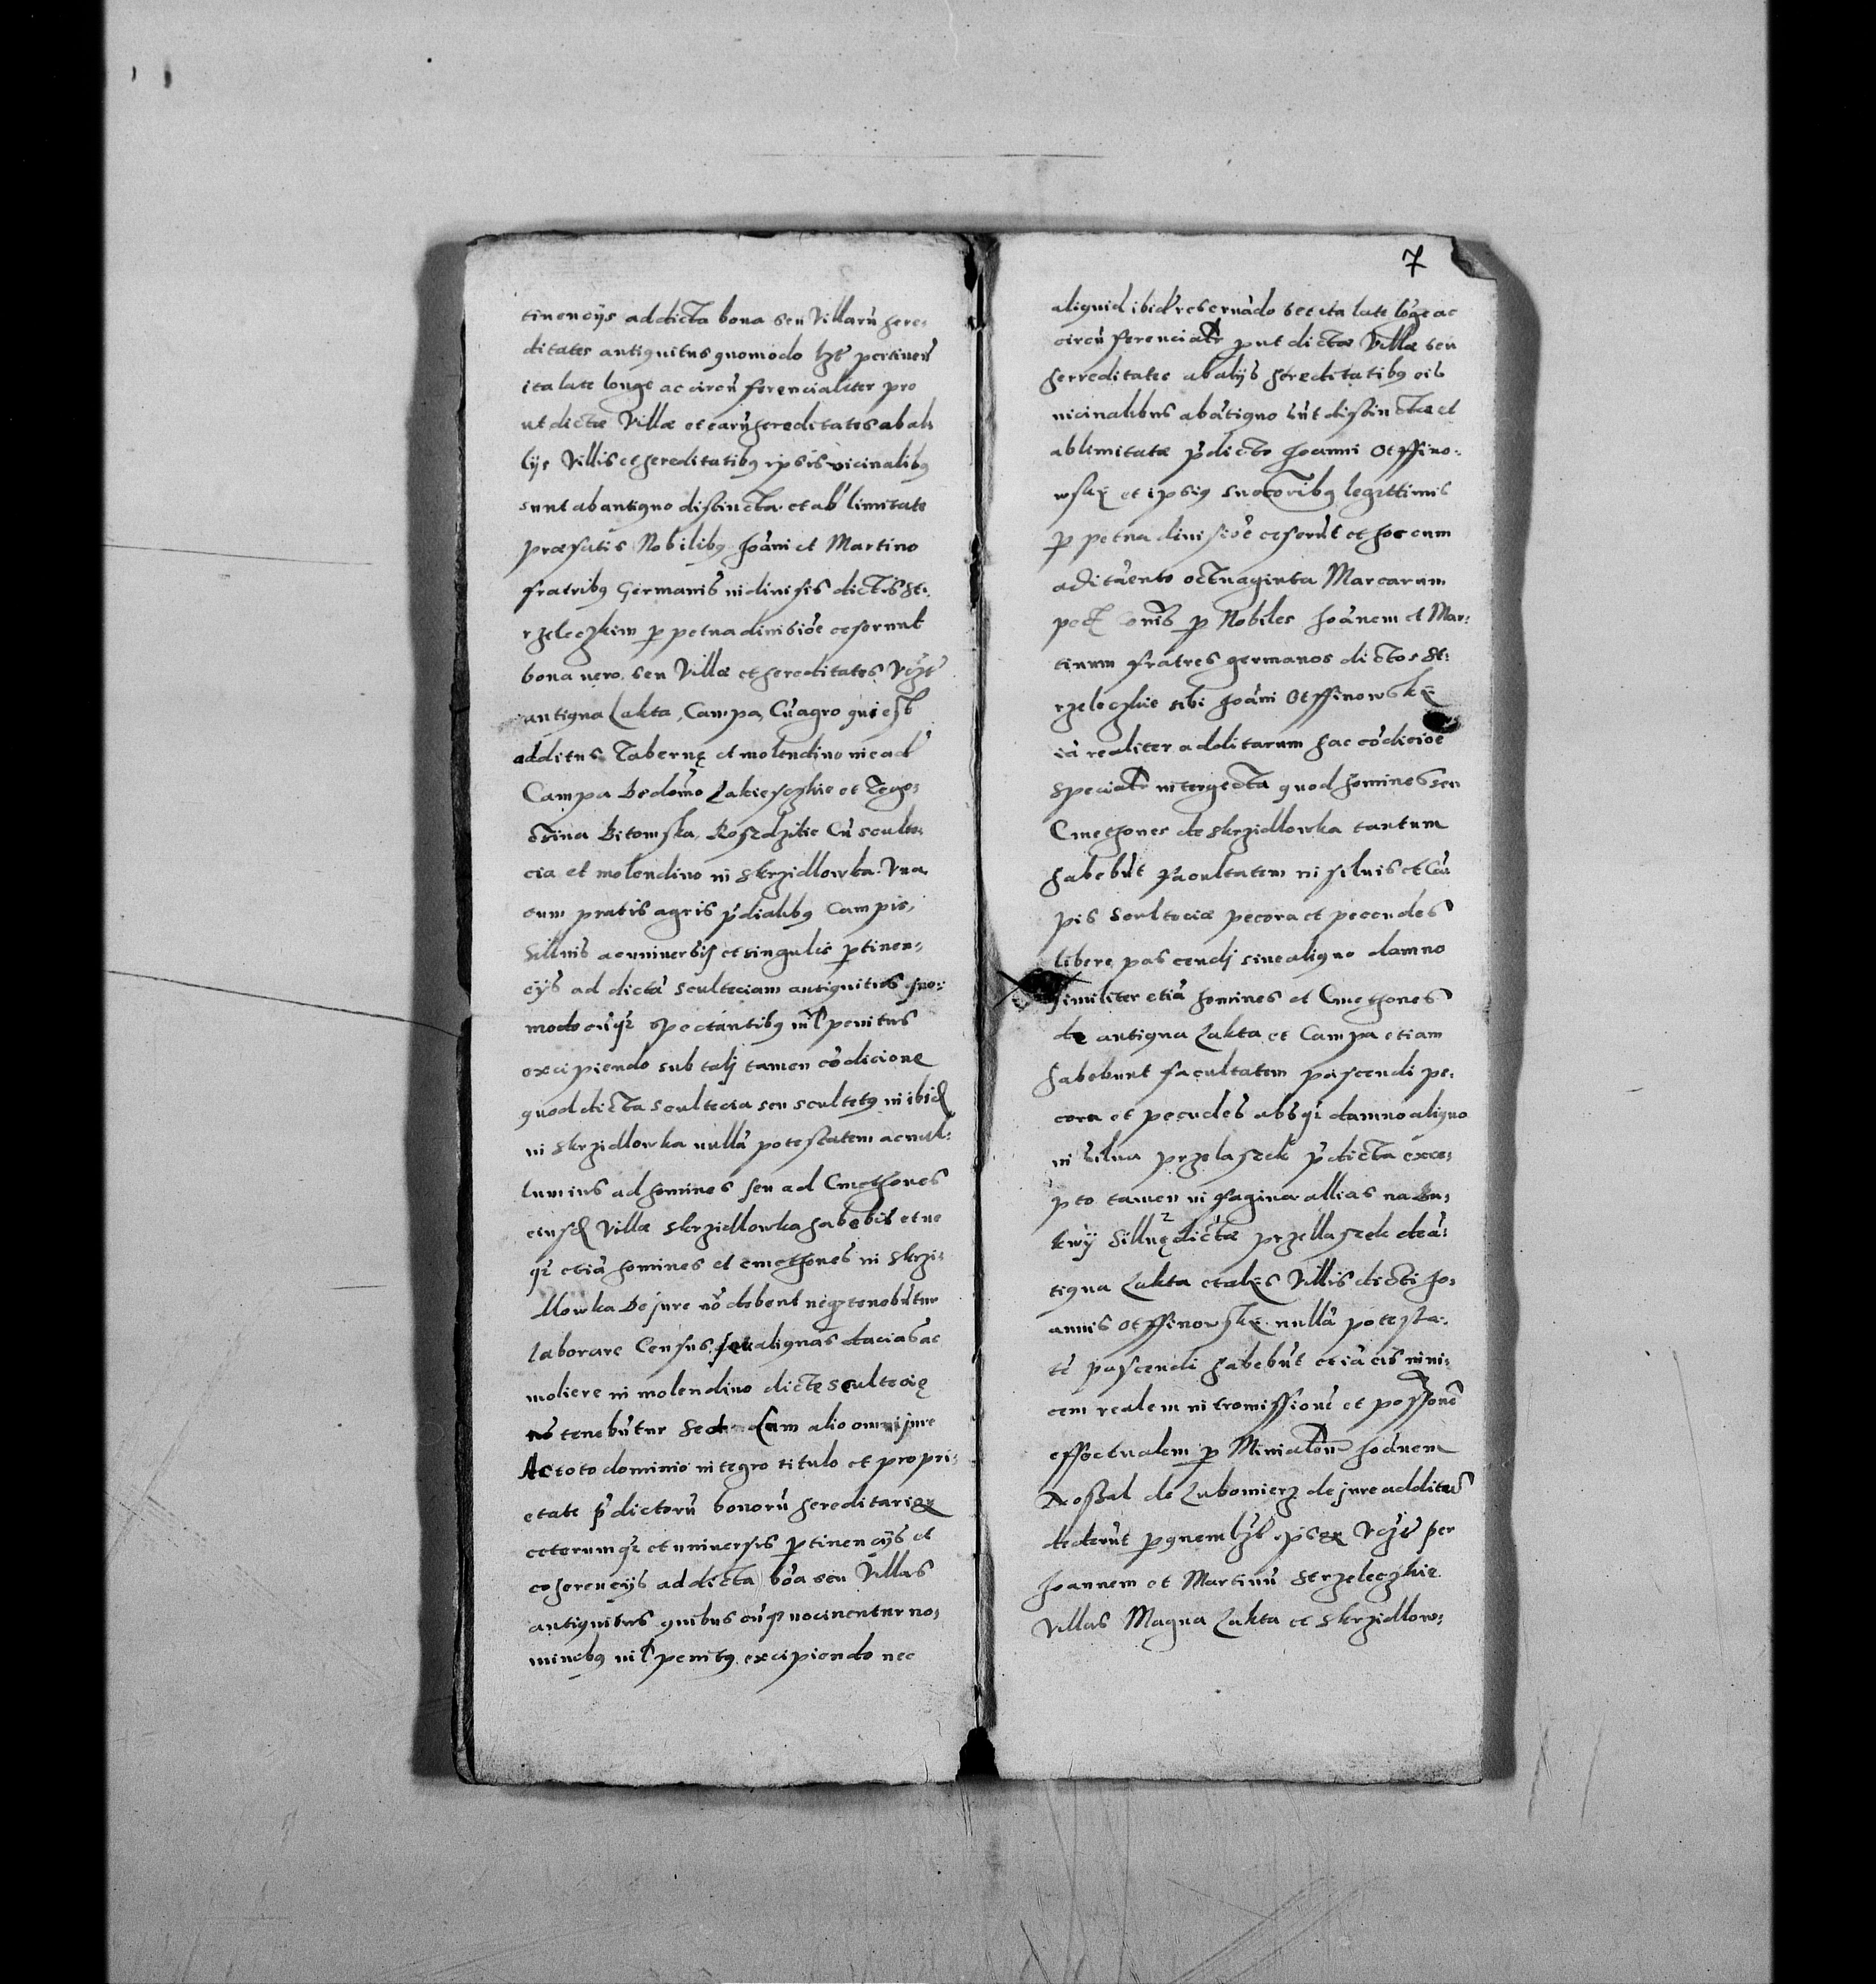 tinencijs ad dicta bona seu Villarũ here:
ditates antiquitus quomodo lẓt pertineñ
ita late longe ac circũ ferencialiter pro
ut dictæ Villæ et earũ hereditates ab ali
lijs Villis et hereditatibꝫ ipsis vicinalibꝫ
sunt ab antiquo distincta et ab limitate
præfatis Nobilibꝫ Joãni et Martino
fratribꝫ Germanis indivisis dictis St:
rzeleczkim ꝑpetua divisiõe cesserunt
bona vero seu Villæ et hereditates
antiqua Lakta, Campa, Cũ agro qui est
additus Tabernę et molendino
Campa Lakiesczkie et
Bitomska, Rosdzilie Cũ scult:
cia et molendino in Skrzidlowka. Vna
cum pratis agris p̃dialibꝫ Campis,
Sillvis ac universis et singulis ꝑtinen:
cijs ad dictã sculteciam antiquitus quo:
modocũqꝫ spectantibꝫ nil penitus
excipiendo sub talj tamen cõdicione
quod dicta scultecia seu scultetꝫ in ibid
in Skrzidlowka nullã potestatem ac nul:
lum ius ad homines seu ad Cmethones
eiusd Villæ Skrzidlowka habebit et ne
qꝫ etiã homines et cmethones in Skrzi:
dlowka De jure nõ debent neqꝫ tenebũtur
laborare Census seu aliquas dacias ac
moliere in molendino dictę scultecię
nõ tenebũtur Sed cum alio omni jure
Ac toto dominio integro titulo et propri:
etate p̃dictorũ bonorũ hereditarioꝝ
ceterumqꝫ et universis ꝑtinencijs et
coherencijs ad dicta bõa seu Villas
antiquitus quibus cũqꝫ nocinentur no:
minibꝫ nil penitꝫ excipiendo nec
7
aliquid ibid reservãdo set ita late lõge ac
circũ ferencialr put dictæ Villæ seu
herreditates ab alijs hereditatibꝫ eis
vicinalibus ab ãtiquo sũt distinctæ et
ablimitatæ p̃dicto Joanni Otffino:
wskę et ipsiꝫ succoribꝫ legittimis
ꝑpetua divisiõe cesserũt et hoc cum
aditãento octuaginta Marcarum
pec ꝑ Nobiles Joãnem et Mar:
tinum fratres germanos dictos St:
rzeleczkie sibi Joãni Otffinowskę
iã realiter additarum hac cõdicioe
specialr intergecta quod homines seu
Cmethones de Skrzidlowka tantum
habebũt facultatem in silvis et Cã
pis Scultociæ pecora et pecudes
libere pascendj sine aliquo damno
similiter etiã homines et Cmethones
de antiqua Lakta et Campa etiam
habebunt facultatem pascendi pe:
cora et pecudes absqꝫ damno aliquo
in silva przelaszek p̃dicta exce:
pto tamen in fagina allias na Bu:
kwÿ Sillvę dictæ przellaszek de ã:
tiqua Lakta et alijs Villis dicti Jo:
annis Otffinowskę nullã potesta:
tẽ pascendi habebũt etiã eis nini:
cem realem intromissionẽ et possionẽ
effectualem ꝑ Minialem Joãnem
Koszal de Lubomierz de jure additũ
dederũt ꝑ quem ipsoꝝ per
Joannem et Martinũ Strzeleczkie
Villas Magna Lakta et Skrzidlow: